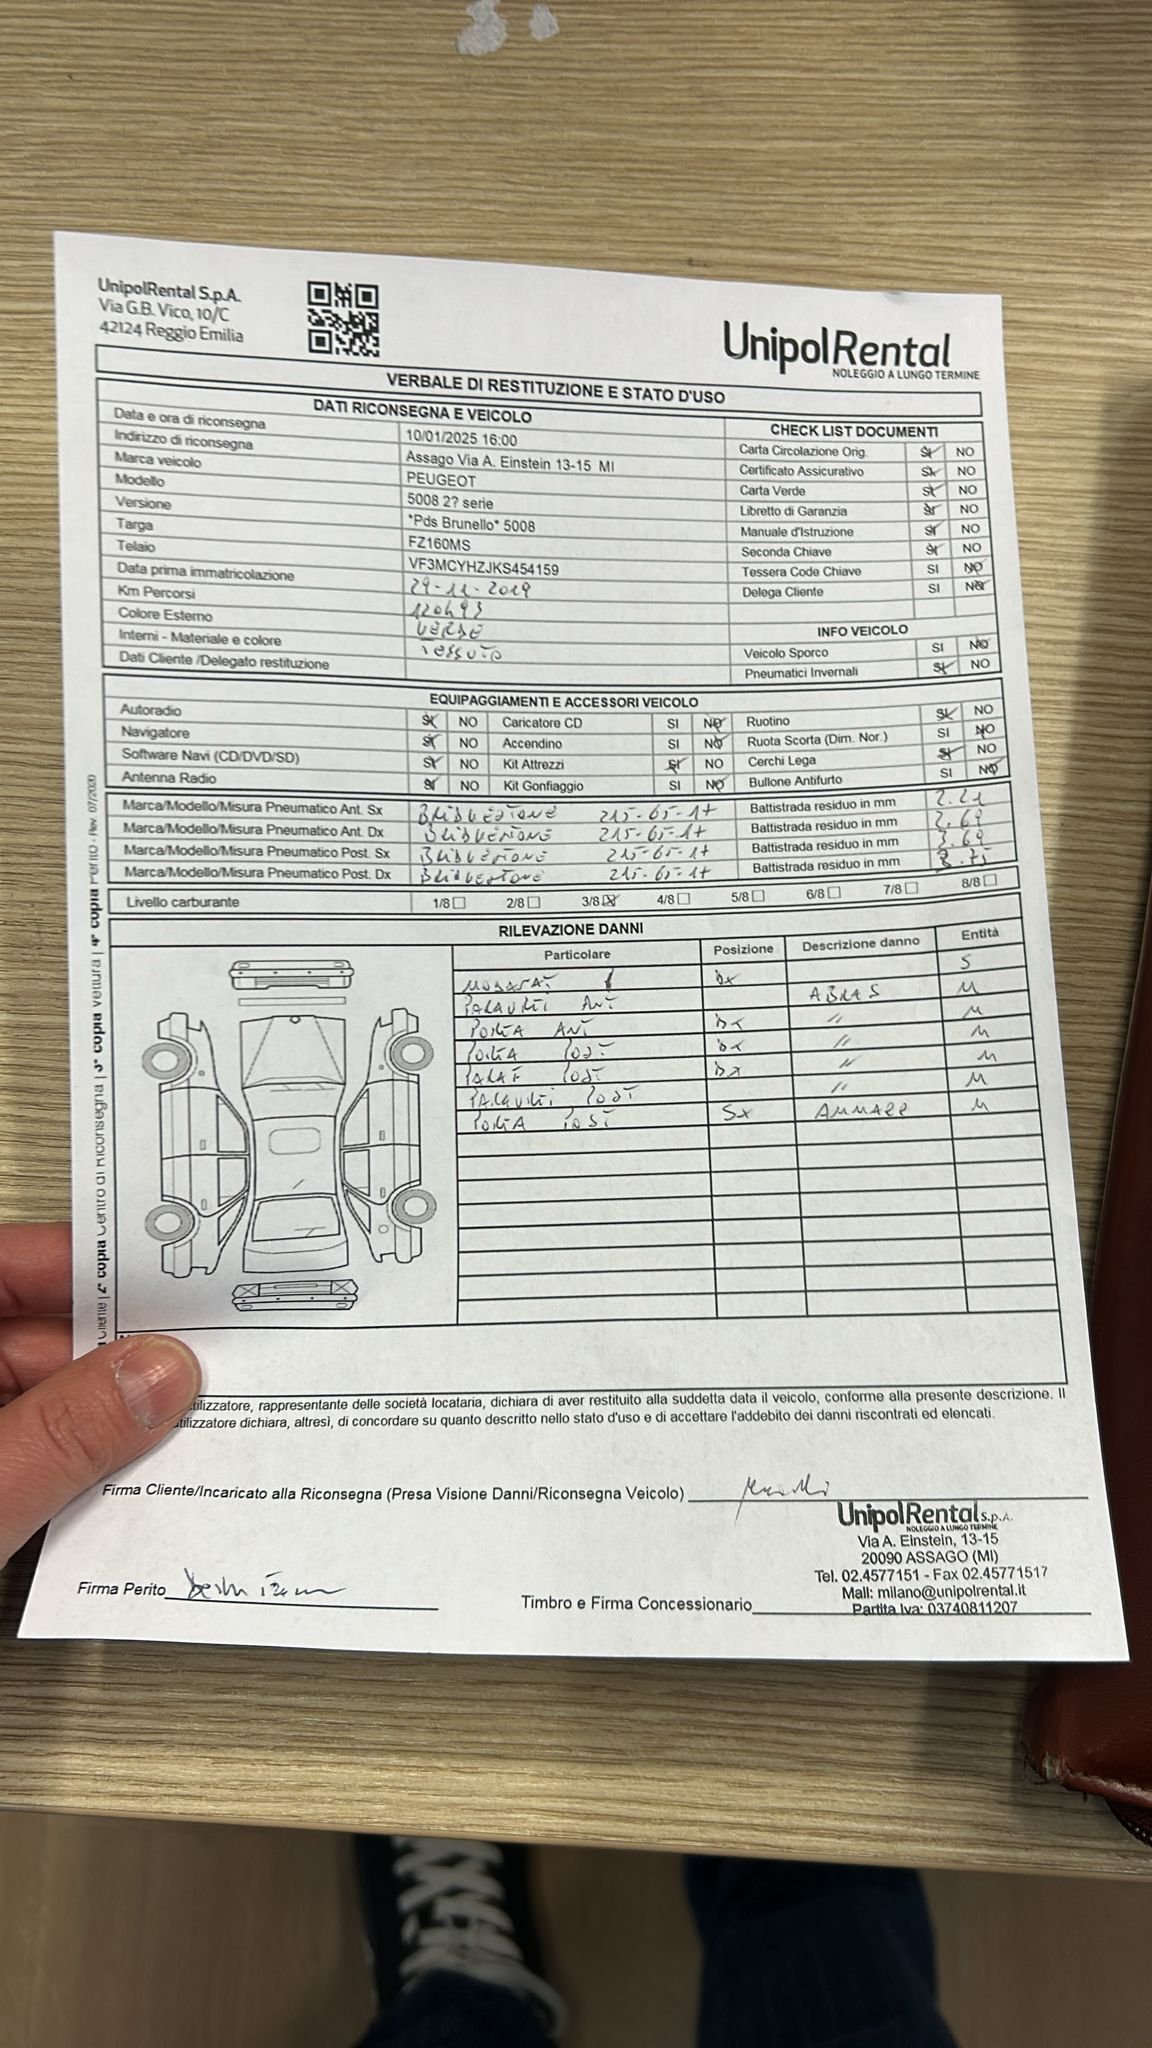 UnipolRental S.p.A.
Via G.B. Vico, 10/C
42124 Reggio Emilia
UnipolRental
NOLEGGIO A LUNGO TERMINE
VERBALE DI RESTITUZIONE E STATO D'USO
DATI RICONSEGNA E VEICOLO
Data e ora di riconsegna 10/01/2025 16:00
Indirizzo di riconsegna Assago Via A. Einstein 13-15 MI
Marca veicolo PEUGEOT
Modello 5008 2? serie
Versione *Pds Brunello* 5008
Targa FZ160MS
Telaio VF3MCYHZJKS454159
Data prima immatricolazione 29-11-2019
Km Percorsi
Colore Esterno VERDE
Interni - Materiale e colore TESSUTO
Dati Cliente /Delegato restituzione
CHECK LIST DOCUMENTI
Carta Circolazione Orig. SI NO
Certificato Assicurativo SI NO
Carta Verde SI NO
Libretto di Garanzia SI NO
Manuale d'Istruzione SI NO
Seconda Chiave SI NO
Tessera Code Chiave SI NO
Delega Cliente SI NO
INFO VEICOLO
Veicolo Sporco SI NO
Pneumatici Invernali SI NO
EQUIPAGGIAMENTI E ACCESSORI VEICOLO
Autoradio SI NO Caricatore CD SI NO Ruotino SI NO
Navigatore SI NO Accendino SI NO Ruota Scorta (Dim. Nor.) SI NO
Software Navi (CD/DVD/SD) SI NO Kit Attrezzi SI NO Cerchi Lega SI NO
Antenna Radio SI NO Kit Gonfiaggio SI NO Bullone Antifurto SI NO
Marca/Modello/Misura Pneumatico Ant. Sx 215-65-17 Battistrada residuo in mm 2.21
Marca/Modello/Misura Pneumatico Ant. Dx 215-65-17 Battistrada residuo in mm 2.69
Marca/Modello/Misura Pneumatico Post. Sx 215-65-17 Battistrada residuo in mm 3.69
Marca/Modello/Misura Pneumatico Post. Dx 215-65-17 Battistrada residuo in mm 3.75
Livello carburante 1/8 2/8 3/8 4/8 5/8 6/8 7/8 8/8
RILEVAZIONE DANNI
Particolare Posizione Descrizione danno Entità
DX S
PARAURTI ANT ABRAS M
PORTA ANT DX " M
PORTA POST DX " M
PARAF POST DX " M
PARAURTI POST " M
PORTA POST SX AMMACC M
Cliente | 2ª copia Centro di Riconsegna | 3ª copia Vettura | 4ª copia Perito - Rev. 07/2020
utilizzatore, rappresentante delle società locataria, dichiara di aver restituito alla suddetta data il veicolo, conforme alla presente descrizione. Il
utilizzatore dichiara, altresì, di concordare su quanto descritto nello stato d'uso e di accettare l'addebito dei danni riscontrati ed elencati.
Firma Cliente/Incaricato alla Riconsegna (Presa Visione Danni/Riconsegna Veicolo)
UnipolRental S.p.A.
NOLEGGIO A LUNGO TERMINE
Via A. Einstein, 13-15
20090 ASSAGO (MI)
Tel. 02.4577151 - Fax 02.45771517
Mail: milano@unipolrental.it
Partita Iva: 03740811207
Firma Perito
Timbro e Firma Concessionario